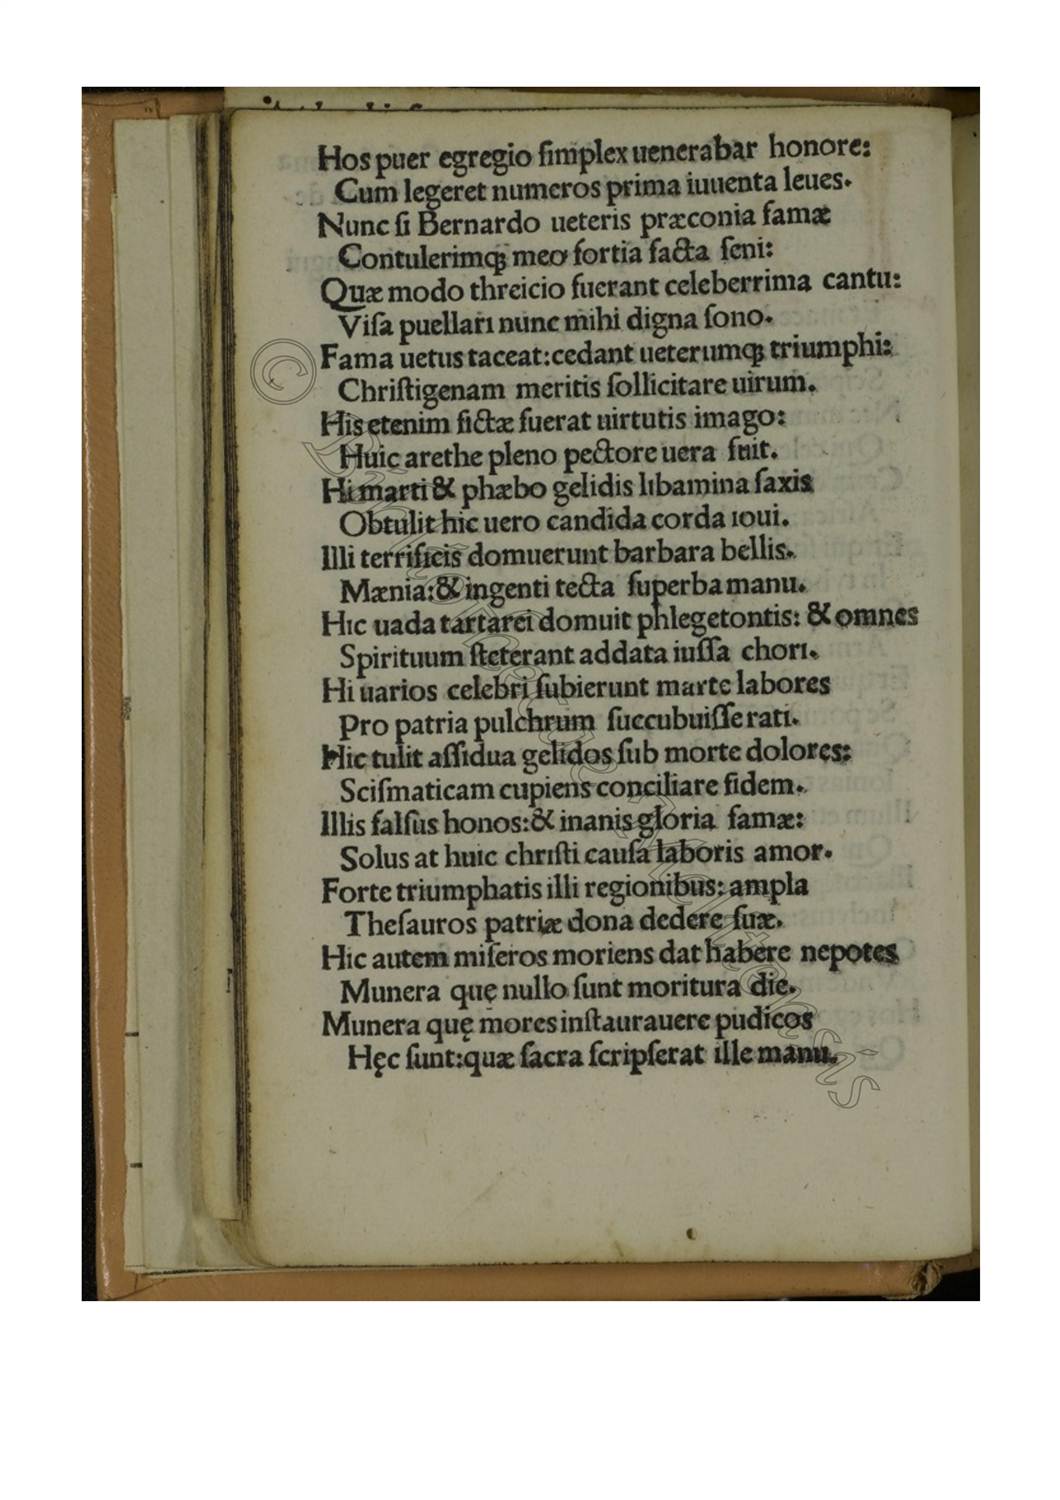 Hos puer egregio ſimplex uenerabar honore:
Cum legeret numeros prima iuuenta leues.
Nunc ſi Bernardo ueteris præconia famæ
Contulerimqꝫ meo fortia facta ſeni:
Quæ modo threicio fuerant celeberrima cantu:
Viſa puellari nunc mihi digna ſono.
Fama uetus taceat: cedant ueterumqꝫ triumphi:
Chriſtigenam meritis ſollicitare uirum.
His etenim fictæ fuerat uirtutis imago:
Huic arethe pleno pectore uera fuit.
Hi marti & phæbo gelidis libamina ſaxis
Obtulit hic uero candida corda ioui.
Illi terrificis domuerunt barbara bellis.
Mænia: & ingenti tecta ſuperba manu.
Hic uada tartarei domuit phlegetontis: & omnes
Spirituum ſteterant addata iuſſa chori.
Hi uarios celebri ſubierunt marte labores
Pro patria pulchrum ſuccubuiſſe rati.
Hic tulit aſſidua gelidos ſub morte dolores:
Sciſmaticam cupiens conciliare fidem.
Illis falſus honos: & inanis gloria famæ:
Solus at huic chriſti cauſa laboris amor.
Forte triumphatis illi regionibus: ampla
Theſauros patriæ dona dedere ſuæ.
Hic autem miſeros moriens dat habere nepotes
Munera quę nullo ſunt moritura die.
Munera quę mores inſtaurauere pudicos
Hęc ſunt: quæ ſacra ſcripſerat ille manu.